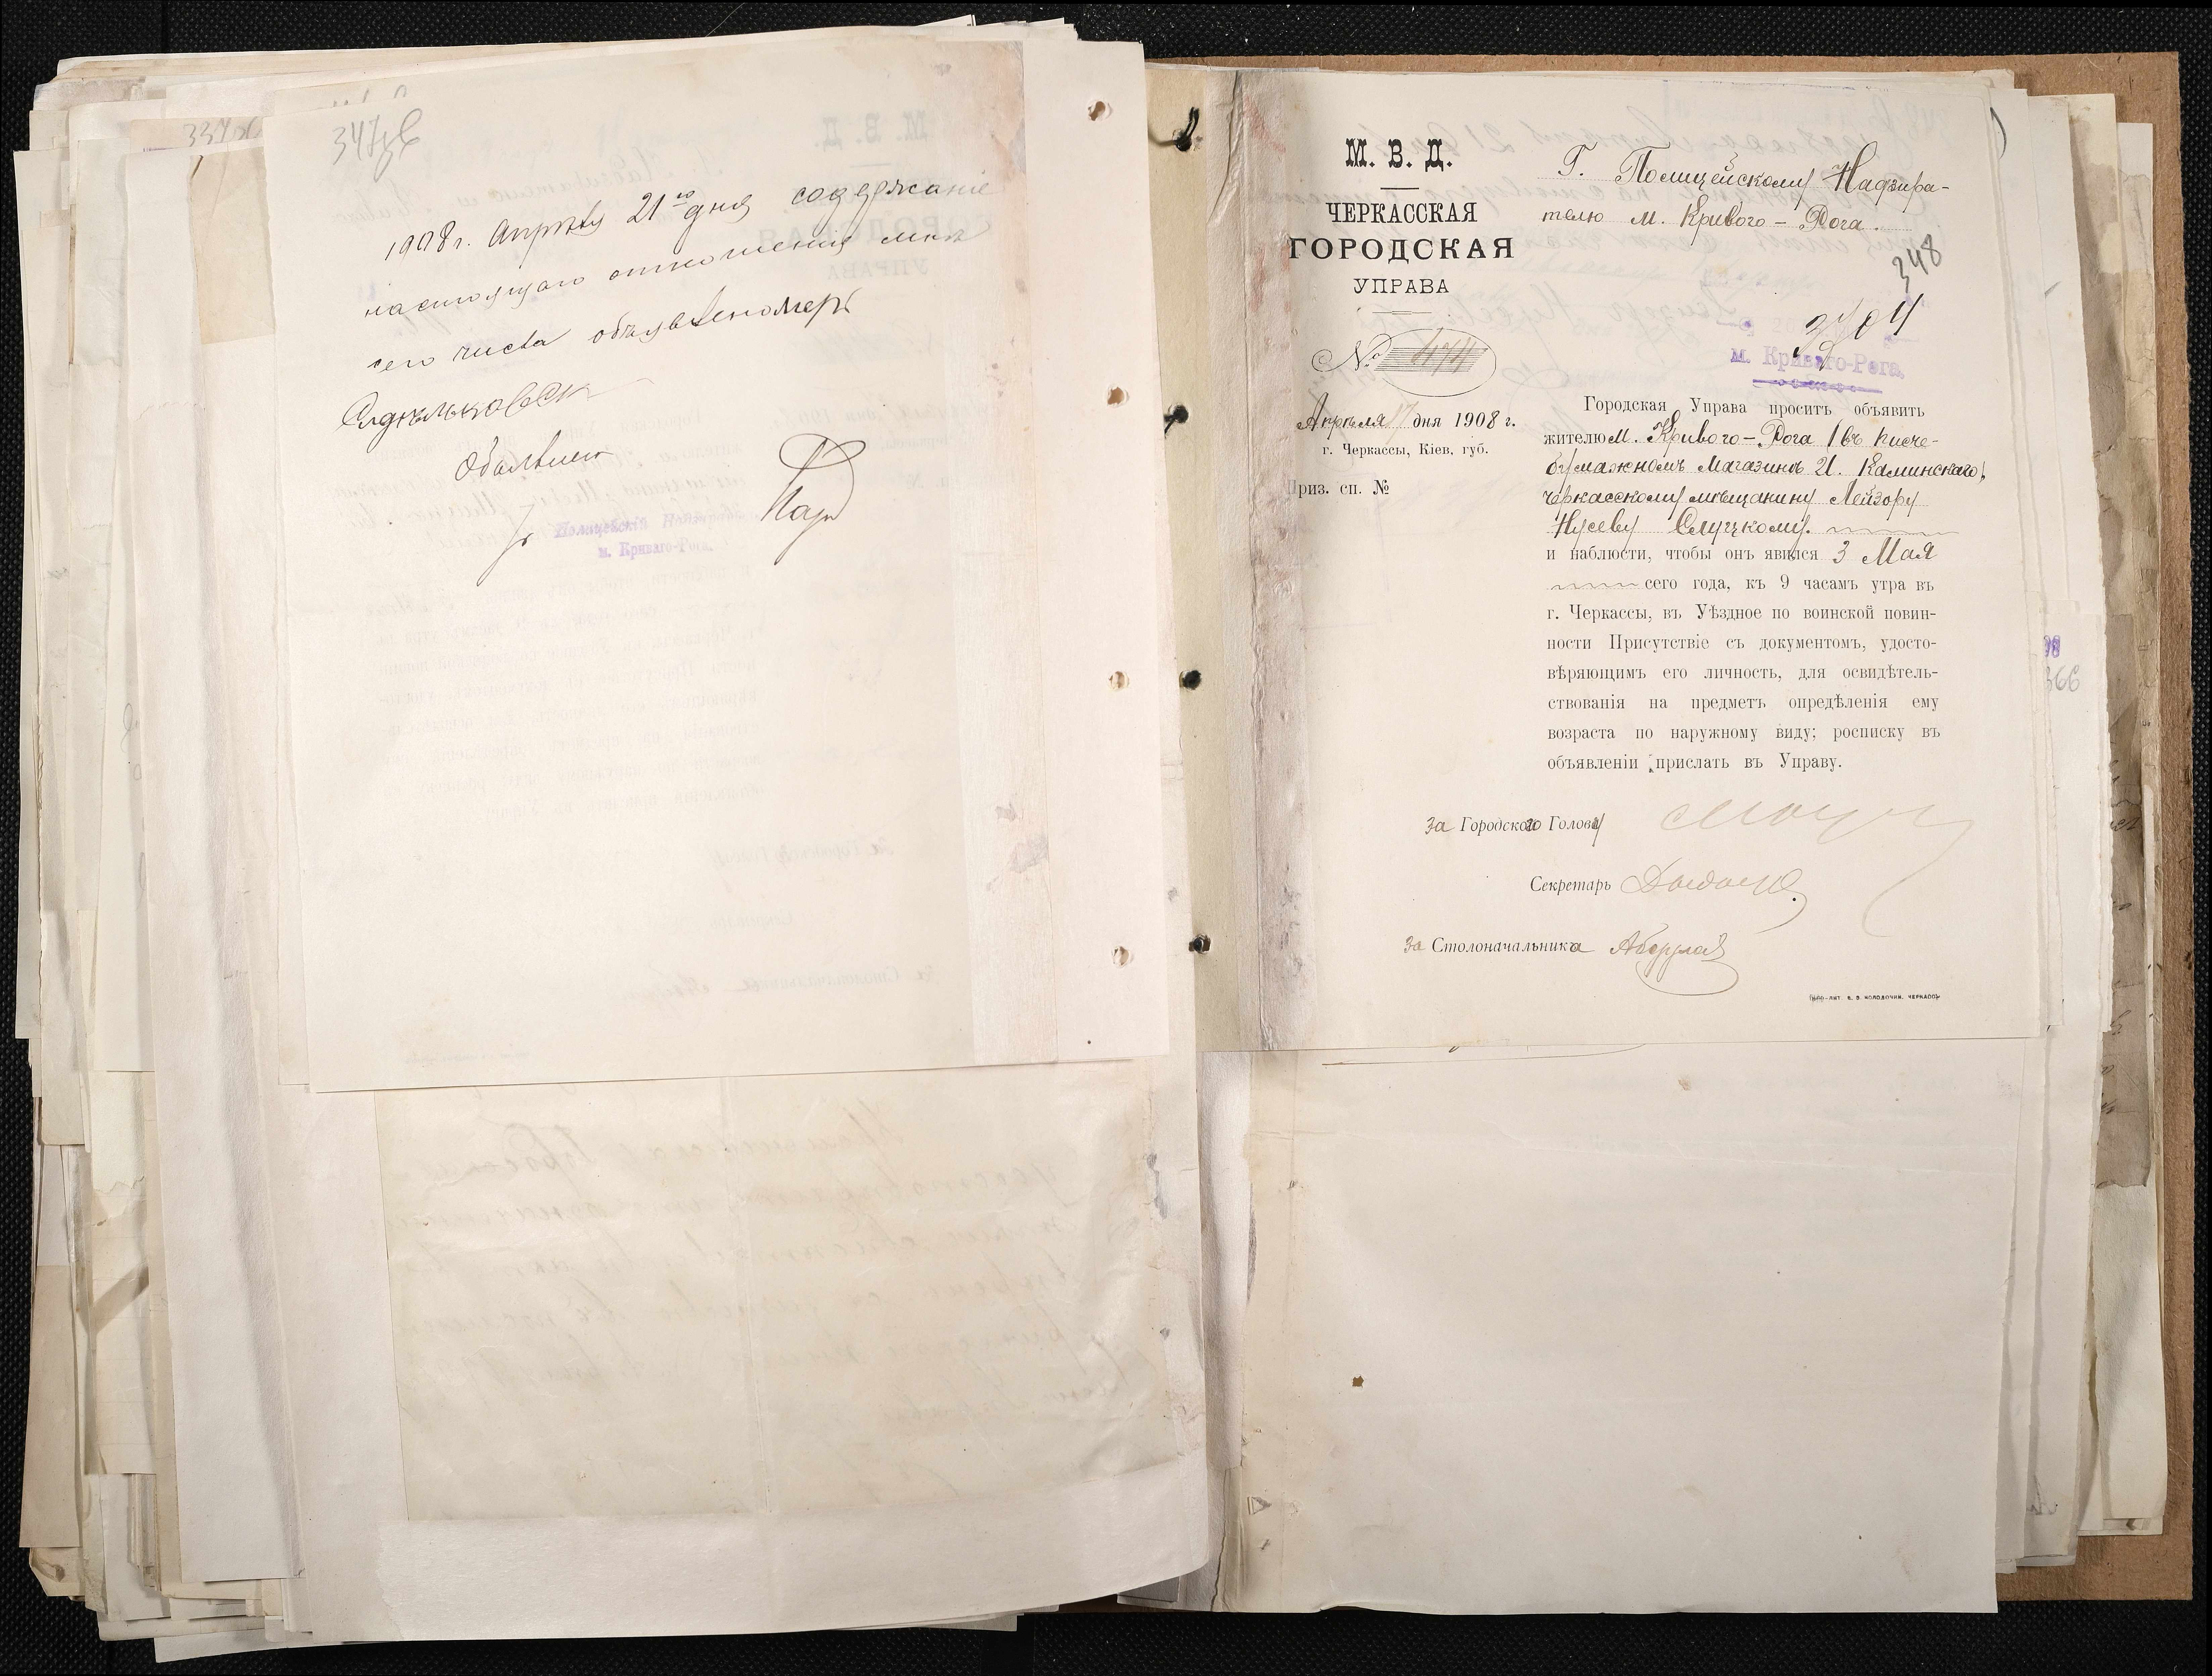 347об
1908 г. Апрѣля 21го дня содержаніе
настоящаго отношенія мнѣ
сего числа объявлено
Объявилъ
Полицейскій Надзиратель
м. Криваго-Рога.
М. В. Д.
ЧЕРКАССКАЯ
ГОРОДСКАЯ
УПРАВА
№
Апрѣля 17 дня 1908 г.
г. Черкассы, Кіев. губ.
Приз. сп. №
Г. Полицейскому Надзира-
телю м. Кривого-Рога.
348
м. Криваго-Рога.
Городская Управа проситъ объявить
жителю м. Кривого-Рога (въ писче-
бумажномъ магазинѣ И. Каминскаго)
черкасскому мѣщанину Лейзору
Нусеву Слуцкому.
и наблюсти, чтобы онъ явился 3 Мая
сего года, къ 9 часамъ утра въ
г. Черкассы, въ Уѣздное по воинской повин-
ности Присутствіе съ документомъ, удосто-
вѣряющимъ его личность, для освидѣтель-
ствованія на предметъ опредѣленія ему
возраста по наружному виду; росписку въ
объявленіи прислать въ Управу.
За Городского Голову
Секретарь
За Столоначальника
366